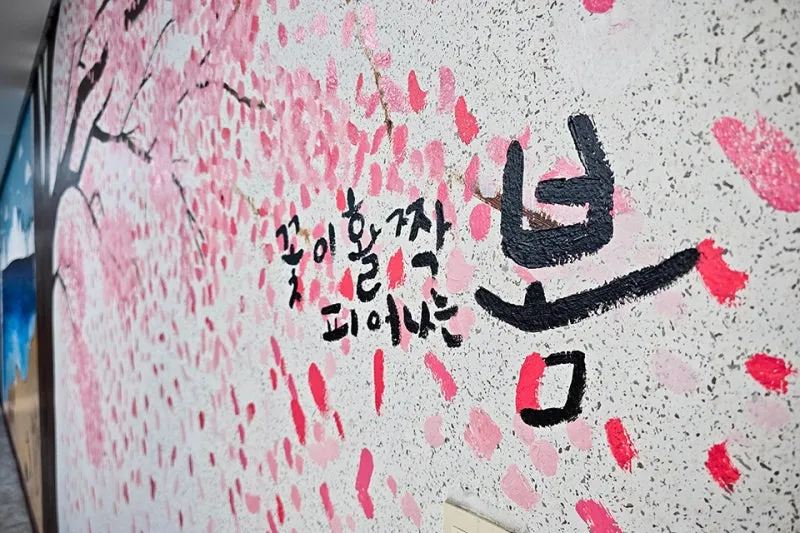 꽃이 활짝
피어나는
봄